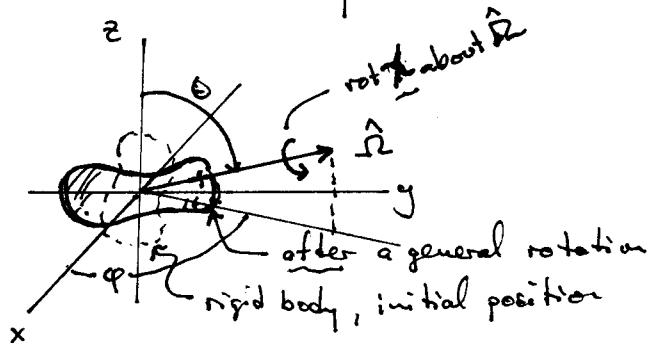 z
θ
rot<u>n</u> about Ω̂
Ω̂
y
after a general rotation
φ
rigid body, initial position
x